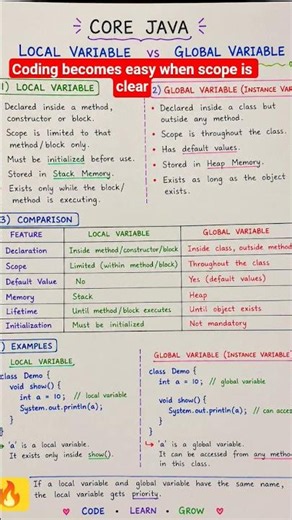 CORE JAVA
LOCAL VARIABLE vs GLOBAL VARIABLE
Coding becomes easy when scope is
clear
1) LOCAL VARIABLE
Declared inside a method,
constructor or block.
Scope is limited to that
method/block only.
Must be initialized before use.
Stored in Stack Memory.
Exists only while the block/
method is executing.
2) GLOBAL VARIABLE (INSTANCE VARIABL
• Declared inside a class but
outside any method.
• Scope is throughout the class.
• Has default values.
• Stored in Heap Memory.
• Exists as long as the object
exists.
3) COMPARISON
FEATURE LOCAL VARIABLE GLOBAL VARIABLE
Declaration Inside method/constructor/block Inside class, outside method
Scope Limited (within method/block) Throughout the class
Default Value No Yes (default values)
Memory Stack Heap
Lifetime Until method/block executes Until object exists
Initialization Must be initialized Not mandatory
) EXAMPLES
LOCAL VARIABLE
class Demo {
void show() {
int a = 10; // local variable
System.out.println(a);
}
}
→ 'a' is a local variable.
It exists only inside show().
GLOBAL VARIABLE (INSTANCE VARIABLE
class Demo {
int a = 10; // global variable
void show() {
System.out.println(a); // can acces
}
}
→ 'a' is a global variable.
It can be accessed from any method
in this class.
If a local variable and global variable have the same name,
the local variable gets priority.
CODE • LEARN • GROW